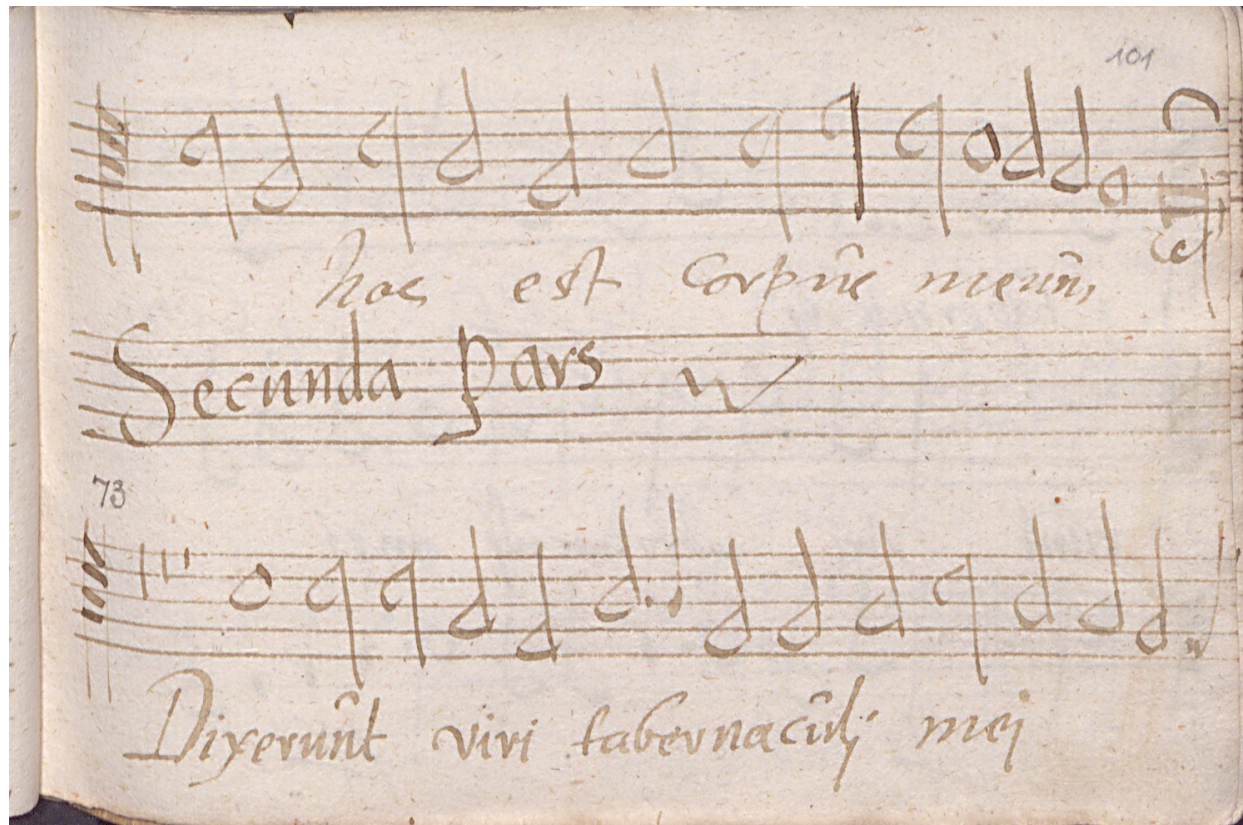 101
hoc est Corpus meum,
Secunda Pars
73
Dixerunt viri tabernaculj mej